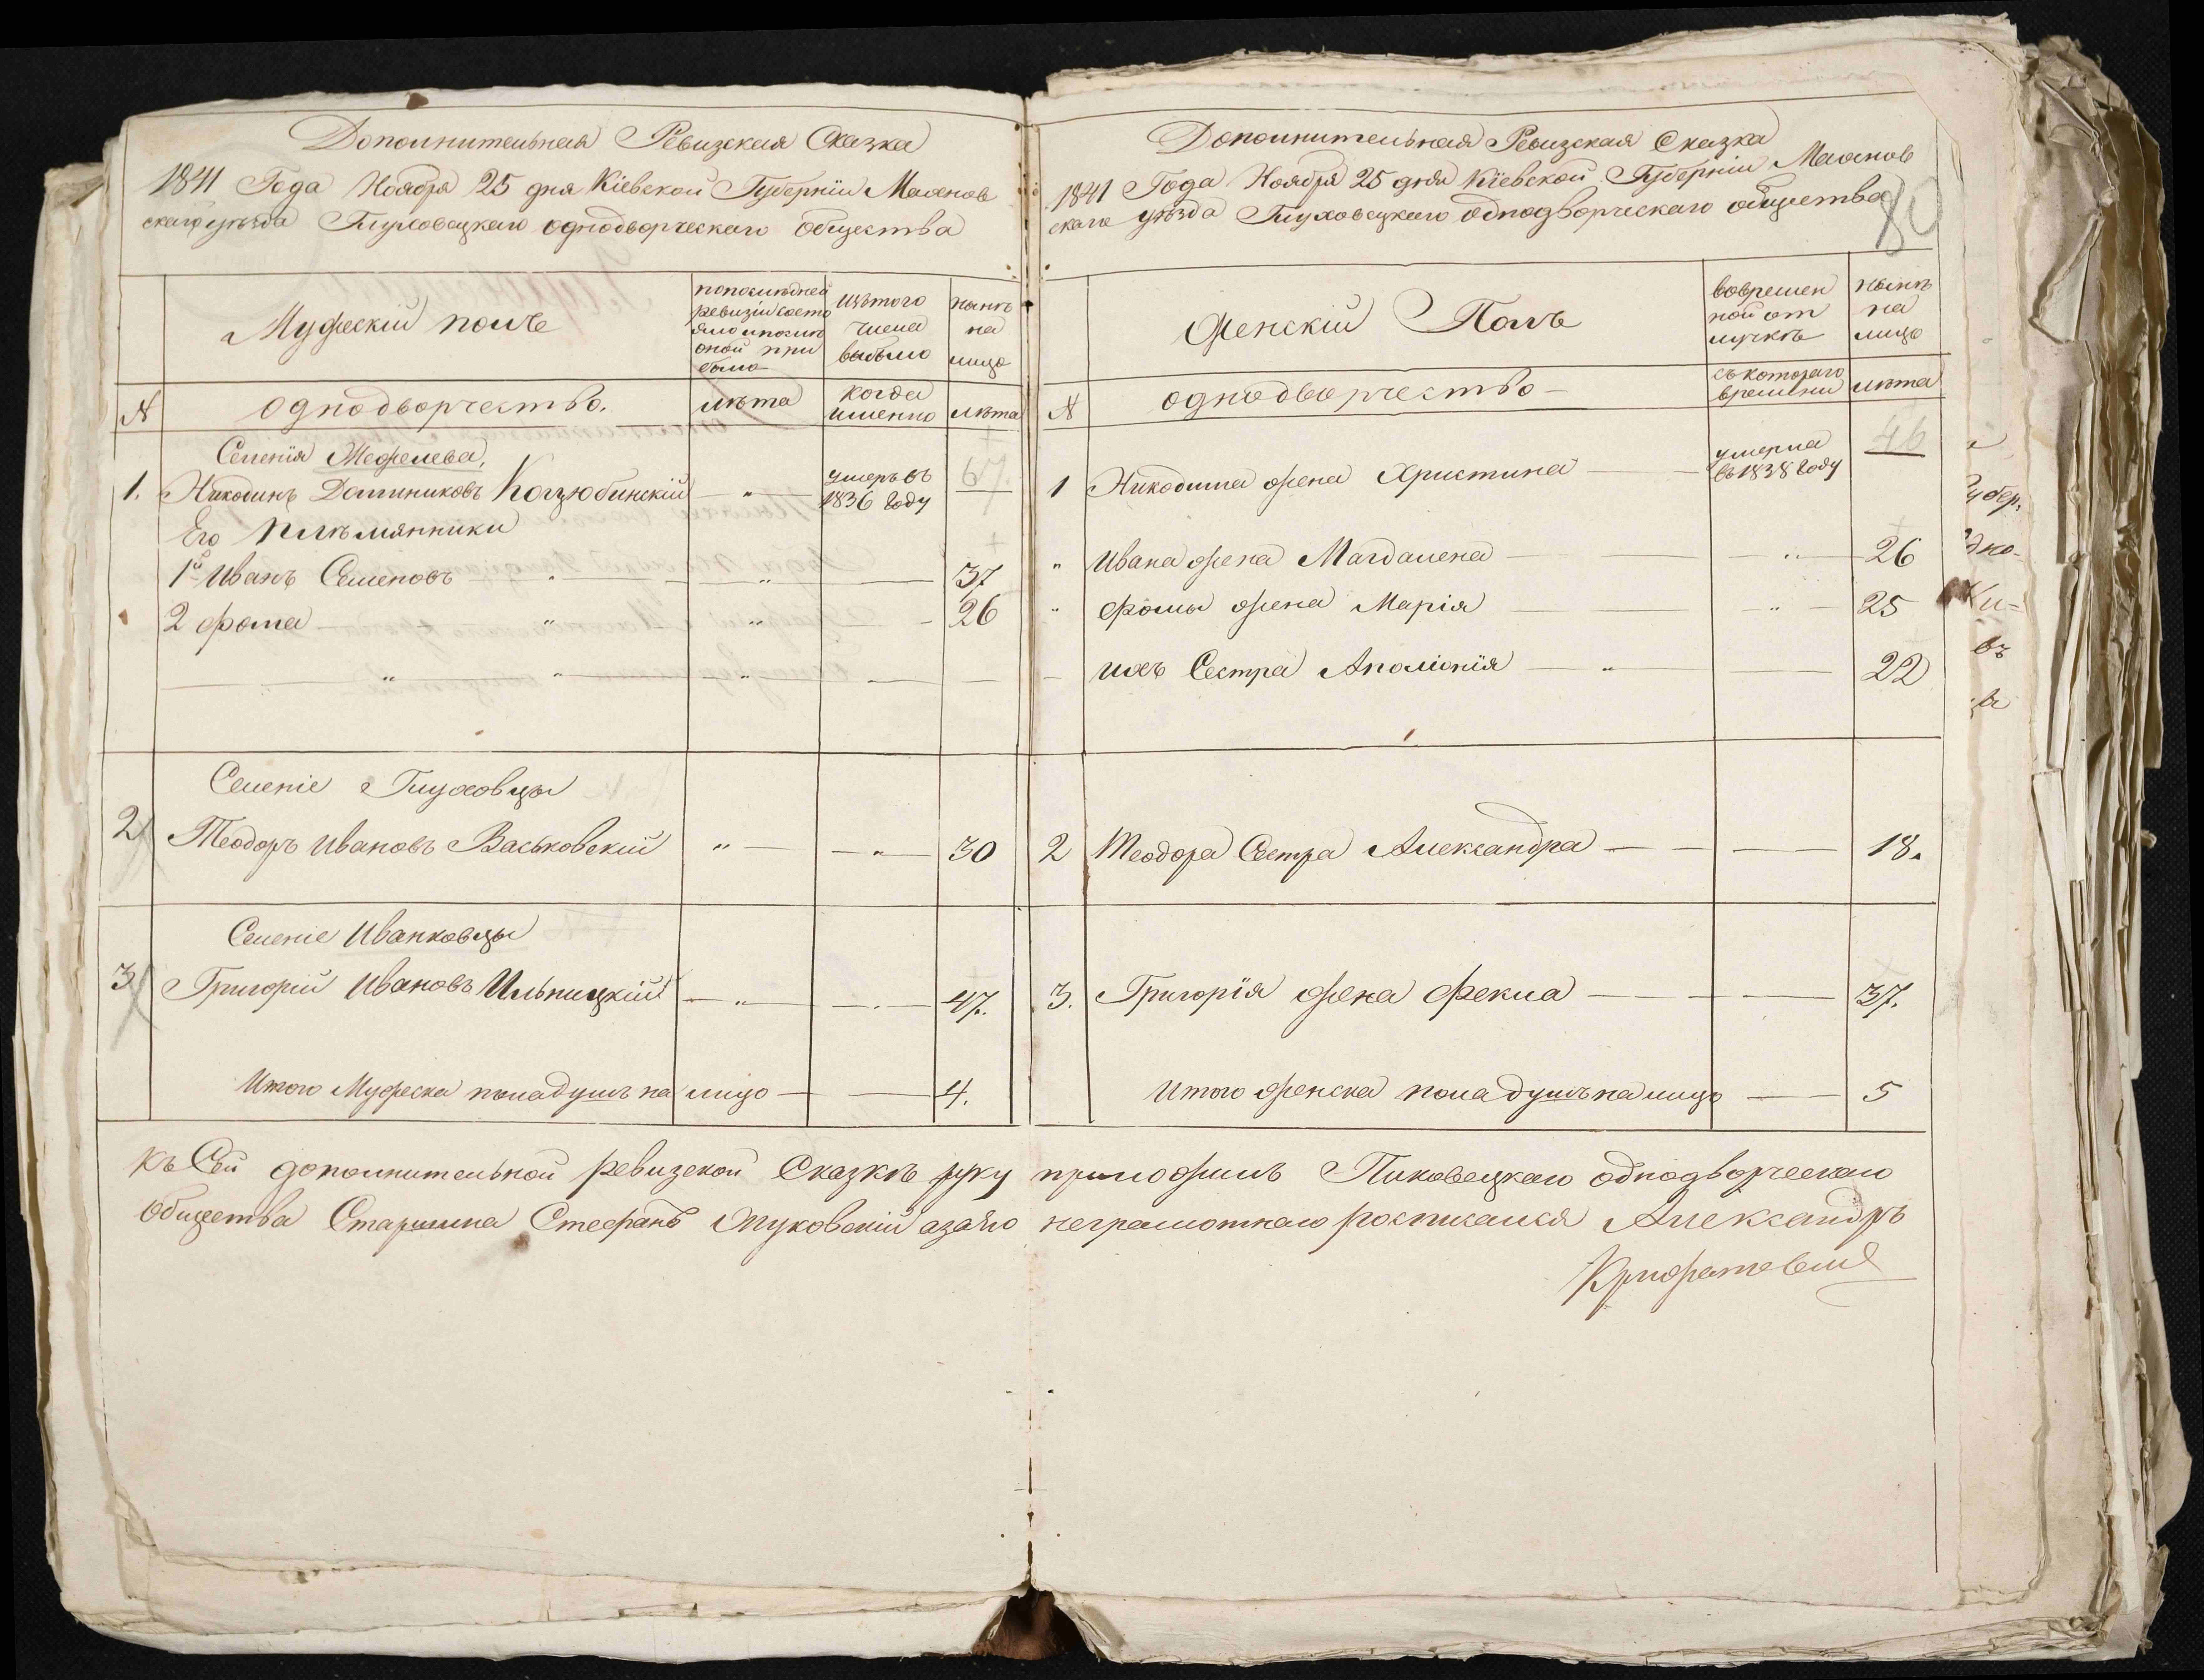 Дополнительная Ревизская Сказка
1841 Года Ноября 25 дня Кіевской Губерніи Махнов
скаго уѣзда Глуховецкаго однодворческаго общества
Мужескій полъ
по послѣдней
ревизіи состо
яло и послѣ
оной при
было
изъ того
числа
выбыло
нынѣ
на
лицо
№
однодворчество.
лѣта
когда
именно
лѣта
Селенія Межелева,
1. Никодимъ Доминиковъ Коцюбинскій — „ — умеръ въ 1836 году 67
Его племянники
1й Иванъ Семеновъ — „ — „ — 37
2 Фома — „ — „ — 26
Селеніе Глуховцы
2 Теодоръ Ивановъ Васьковскій „ — — „ — 30
Селеніе Иванковцы
3 Григорій Ивановъ Ильницкій — „ — — . — 47.
Итого Мужеска пола душъ на лицо — — 4.
Дополнительная Ревизская Сказка
1841 Года Ноября 25 дня Кіевской Губерніи Махнов
скаго уѣзда Глуховецкаго однодворческаго общества
80
Женскій Полъ
во времен
ной от
лучкѣ
нынѣ
на
лицо
№
однодворчество
съ котораго
времени
лѣта
1 Никодима жена Христина — умерла въ 1838 году 46
„ Ивана жена Магдалена — „ — 26
„ Фомы жена Марія — „ — 25
— ихъ Сестра Аполіонія — „ — 22
2 Теодора Сестра Александра — — — 18.
3. Григорія жена Фекла — — — 37.
Итого женска пола душъ на лицо — — 5
Къ Сей дополнительной ревизской Сказкѣ руку приложилъ Пиковецкаго однодворческаго
общества Старшина Стефанъ Жуковскій а за его неграмотнаго росписался Александръ
губер.
въ